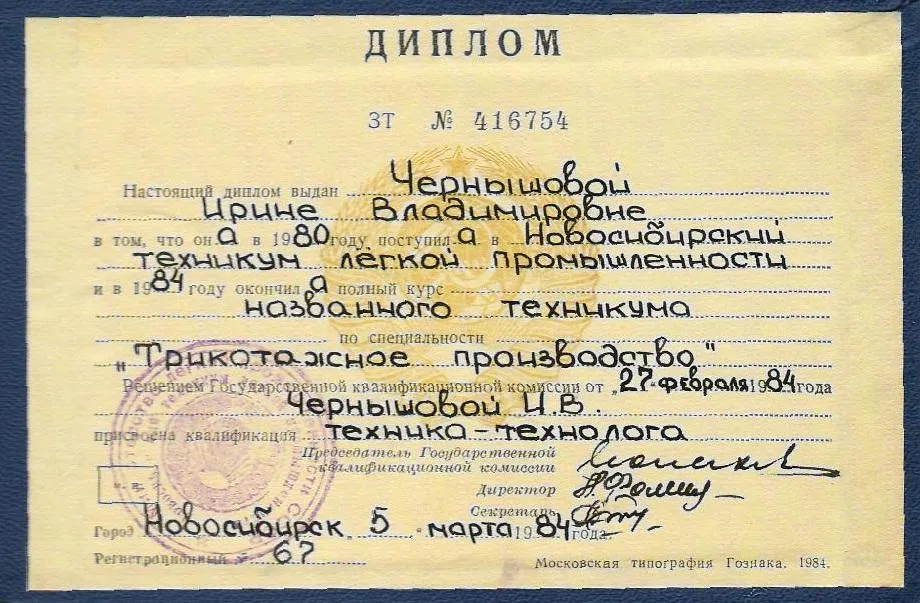 ДИПЛОМ
ЗТ № 416754
Настоящий диплом выдан Чернышовой
Ирине Владимировне
в том, что она в 1980 году поступила в Новосибирский
техникум лёгкой промышленности
и в 1984 году окончила полный курс
названного техникума
по специальности
"Трикотажное производство"
Решением Государственной квалификационной комиссии от „27" февраля 1984 года
Чернышовой И.В.
присвоена квалификация техника-технолога
Председатель Государственной
квалификационной комиссии
Директор
Секретарь
Город Новосибирск, 5 марта 1984 года.
Регистрационный № 67
Московская типография Гознака. 1984.